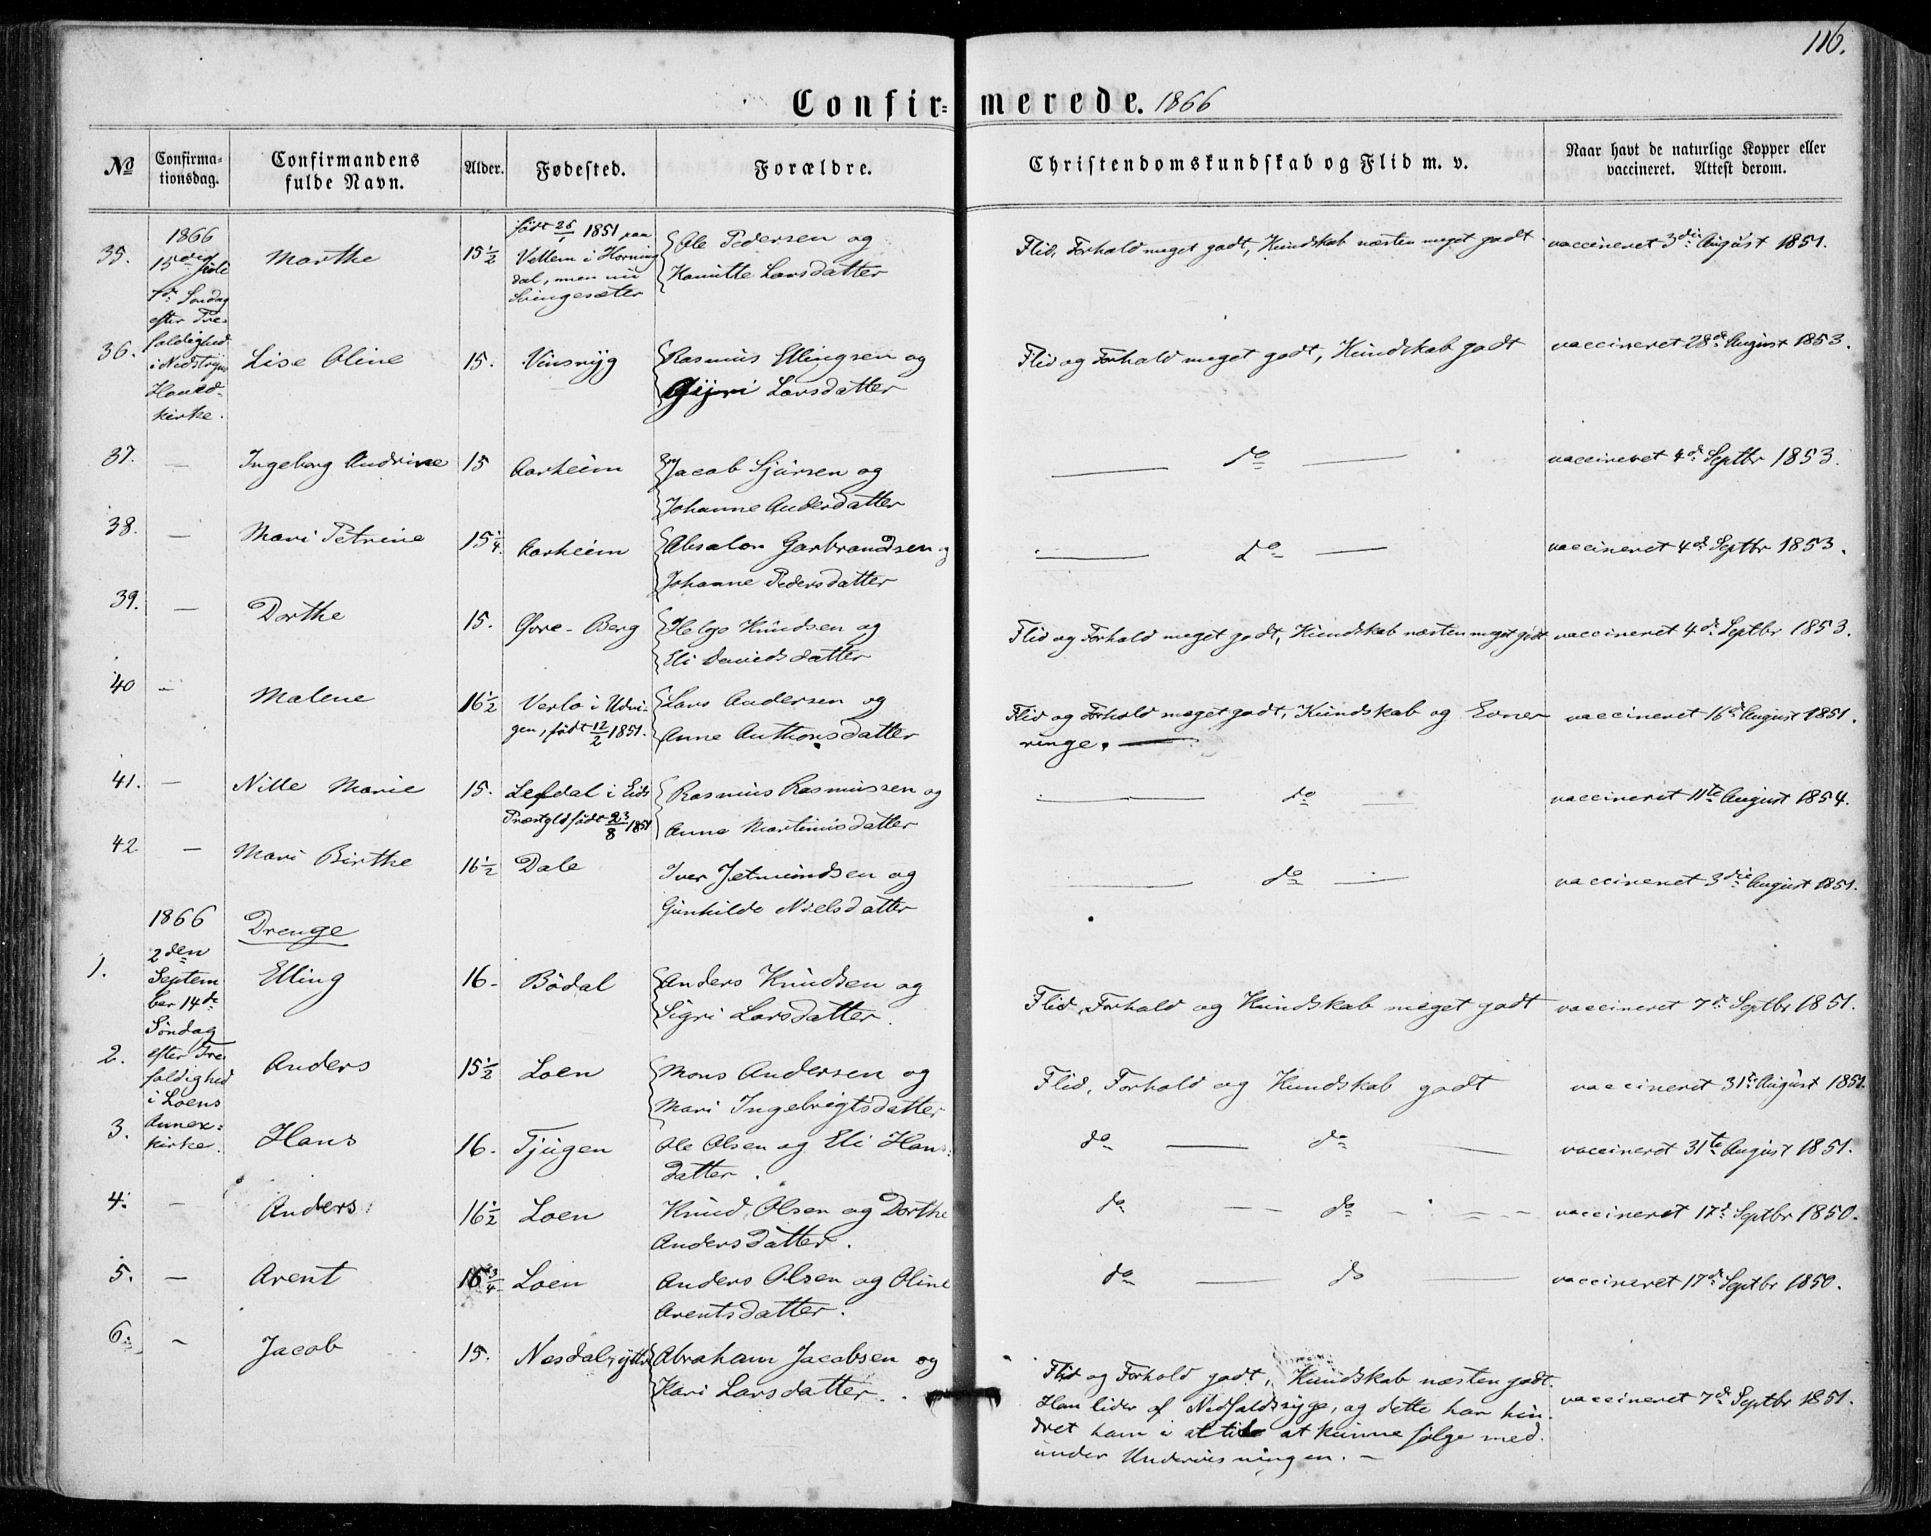 116.
Confir=merede. 1866
No
Confirma-
tionsdag.
Confirmandens
fulde Navn.
Alder.
Fødested.
Forældre.
Christendomskundskab og Flid m. v.
Naar havt de naturlige Kopper eller
vaccineret. Attest derom.
35.
1866
15de
7de Søndag
efter Tre-
faldighed
i Nedstryns
Hoved-
kirke.
Marthe
15½
født 26/1 1851 paa
Vollem i Hornin
dal, men nu
Svingesæter
Ole Pedersen og
Larsdatter
Flid, Forhold meget godt, Kundskab næsten meget godt
vaccineret 3die August 1851.
36.
Lise Oline
15.
Vinsryg
Rasmus Ellingsen og
Gjyri Larsdatter
Flid og Forhold meget godt, Kundskab godt
vaccineret 28de August 1853.
37. —
Ingeborg Andrine
15
Aarheim
Jacob Sjursen og
Johanne Andersdatter
— do —
vaccineret 4de Septbr 1853.
38. —
Mari Petrine
15¼
Aarheim
Absalon Garbrandsen og
Johanne Pedersdatter
— do —
vaccineret 4de Septbr 1853.
39. —
Dorthe
15.
Øvre-Berg
Helge Knudsen og
Eli Davidsdatter
Flid og Forhold meget godt, Kundskab næsten meget godt
vaccineret 4de Septbr 1853.
40 —
Malene
16½
Verlo i Udvi-
gen, født 12/2 1851.
Lars Andersen og
Anne Anthonsdatter
Flid og Forhold meget godt, Kundskab og Evner
ringe. —
vaccineret 16de August 1851.
41. —
Nille Marie
15.
Lefdal i Eids
Præstgld født 23/8 1851
Rasmus Rasmussen og
Anne Martinusdatter
— do —
vaccineret 11te August 1854.
42 —
Mari Birthe
16½
Dale
Iver Jetmundsen og
Gunhilde Nielsdatter
— do —
vaccineret 3die August 1851.
1866
Drenge
1.
2den
Septem
ber 14de
Søndag
efter Tre
faldighed
i Loens
Annex-
kirke.
Elling
16-
Bødal
Anders Knudsen og
Sigri Larsdatter.
Flid, Forhold og Kundskab meget godt
vaccineret 7de Septbr 1851.
2.
Anders
15½
Loen
Mons Andersen og
Mari Ingebrigtsdatter
Flid, Forhold og Kundskab godt
vaccineret 31te August 1851.
3.
Hans
16.
Tjugen
Ole Olsen og Eli Hans-
datter.
do — do —
vaccineret 31te August 1851.
4. —
Anders
16½
Loen
Knud Olsen og Dorthe
Andersdatter.
do — — do — — —
vaccineret 17de Septbr 1850.
5. —
Arent
16¾
Loen
Anders Olsen og Oline
Arentsdatter.
do — do —
vaccineret 17de Septbr 1850.
6. —
Jacob
15.
Nesdal, yttre
Abraham Jacobsen og
Kari Larsdatter.
Flid og Forhold godt, Kundskab næsten godt.
Han lider af Nedfaldssyge, og dette har hin-
dret ham i at kunne følge med
under Undervisningen. —
vaccineret 7de Septbr 1851.